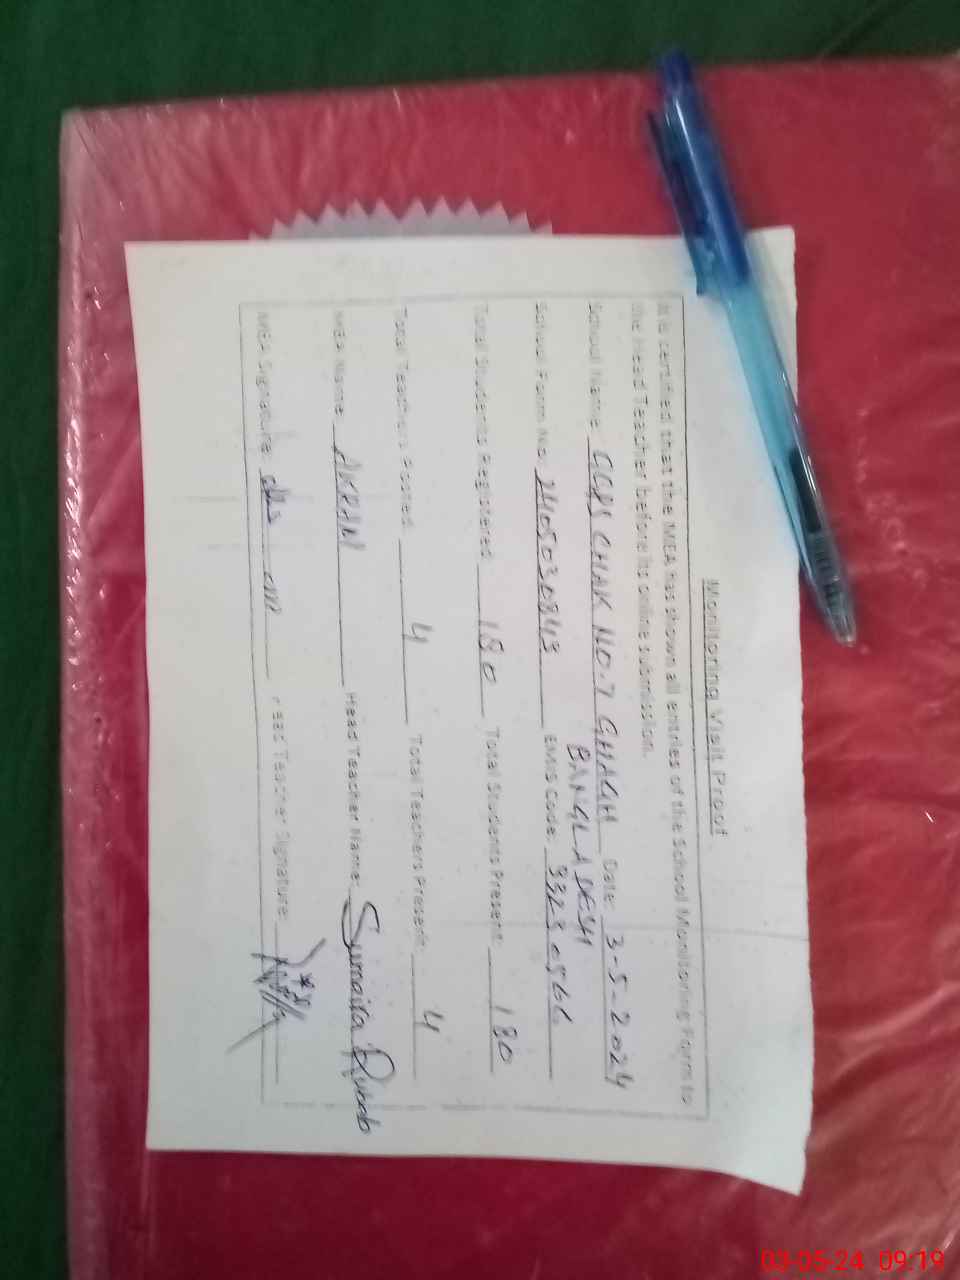 Monitoring Visit Proof
It is certified that the MEA has shown all entries of the School Monitoring Form to
the Head Teacher before its online submission.
School Name: GGPS CHAK NO.7 GHAGH Date: 3-5-2024
BANGLA DESH
School Form No: 2405030843 EMIS Code:
Total Students Registered: 180 Total Students Present: 180
Total Teachers Posted: 4 Total Teachers Present: 4
MEA Name: AKRAM Head Teacher Name: Sumaira Rubab
MEA Signature: Head Teacher Signature:
03-05-24 09:19